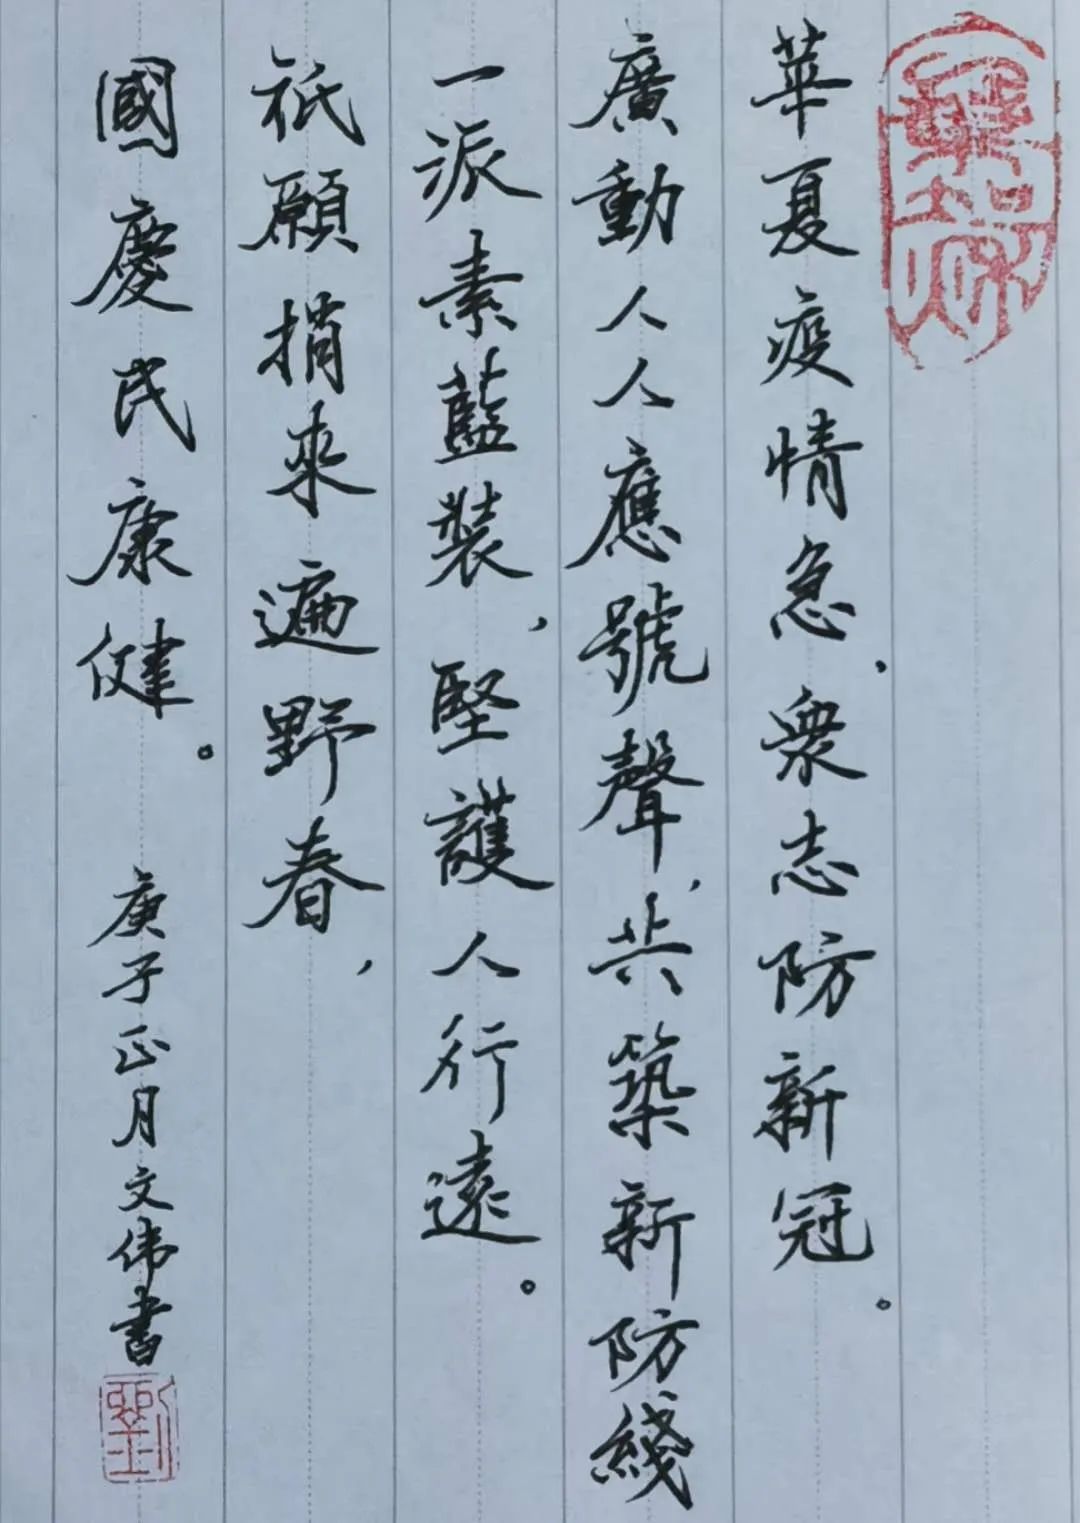 華夏疫情急,衆志防新冠。
廣動人人應號聲,共築新防綫
一派素藍裝,堅護人行遠。
祇願捎來遍野春,
國慶民康健。
庚子正月文伟書
劉